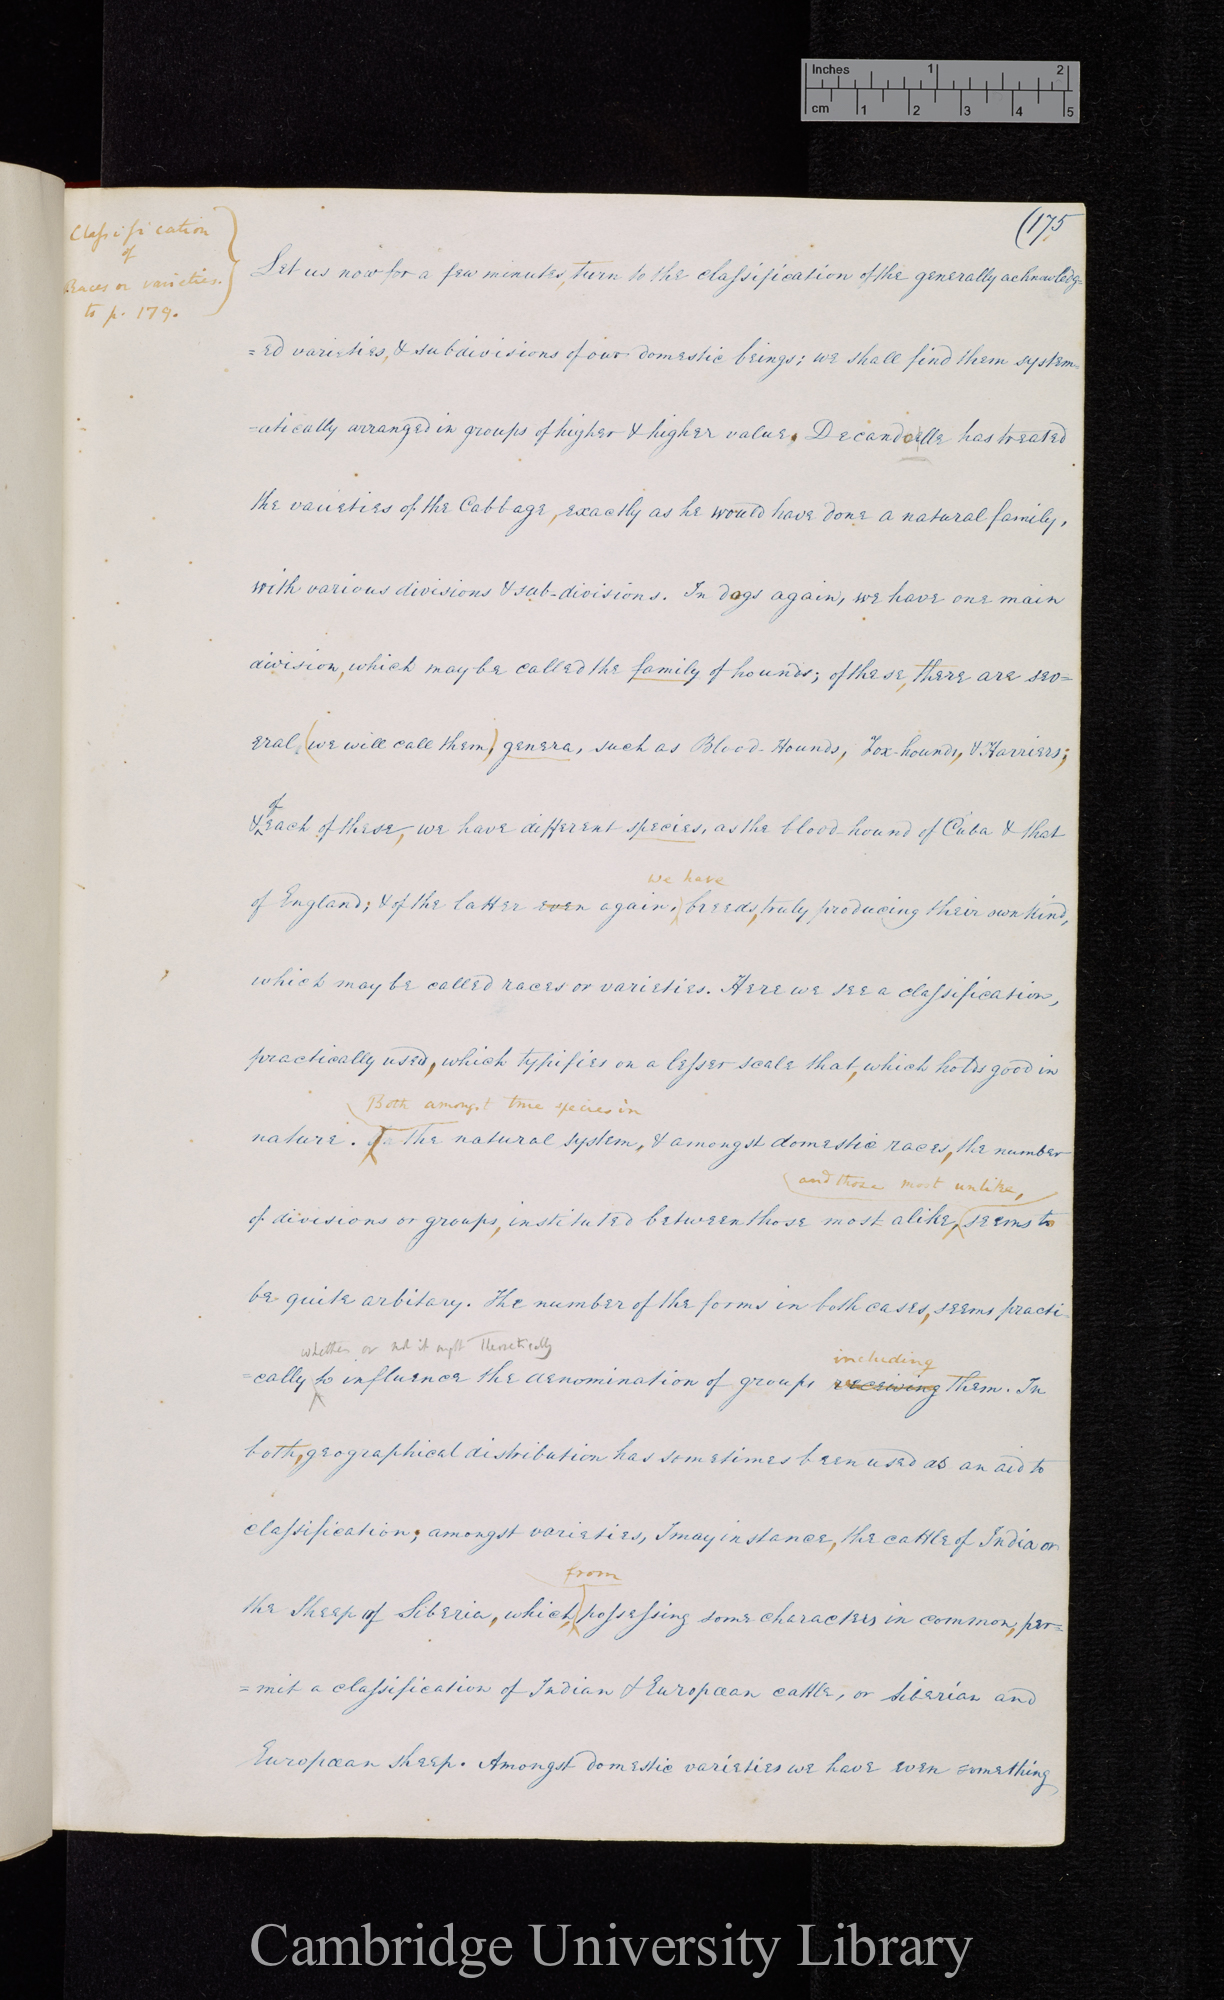 Inches 1 2
cm 1 2 3 4 5
(175
Classification
of
Races or varieties.
to p. 179.
Let us now for a few minutes, turn to the classification of the generally acknowledg=
=ed varieties, & subdivisions of our domestic beings; we shall find them system=
=atically arranged in groups of higher & higher value. Decandolle has treated
the varieties of the Cabbage, exactly as he would have done a natural family,
with various divisions & sub-divisions. In dogs again, we have one main
division, which may be called the family of hounds; of these, there are sev=
eral, (we will call them) genera, such as Blood-Hounds, Fox-hounds, & Harriers;
of
& each of these, we have different species, as the blood-hound of Cuba & that
we have
of England; & of the latter even again, breeds, truly producing their own kind,
which may be called races or varieties. Here we see a classification,
practically used, which typifies on a lesser scale that, which holds good in
Both amongst true species in
nature. In the natural system, & amongst domestic races, the number
and those most unlike,
of divisions or groups, instituted between those most alike, seems to
be quite arbitary. The number of the forms in both cases, seems practi
whether or not it ought theoretically
=cally to influence the denomination of groups receiving them. In
including
both, geographical distribution has sometimes been used as an aid to
classification; amongst varieties, I may instance, the cattle of India or
from
the Sheep of Siberia, which, possessing some characters in common, per=
=mit a classification of Indian & European cattle, or Siberian and
European sheep. Amongst domestic varieties we have even something
Cambridge University Library